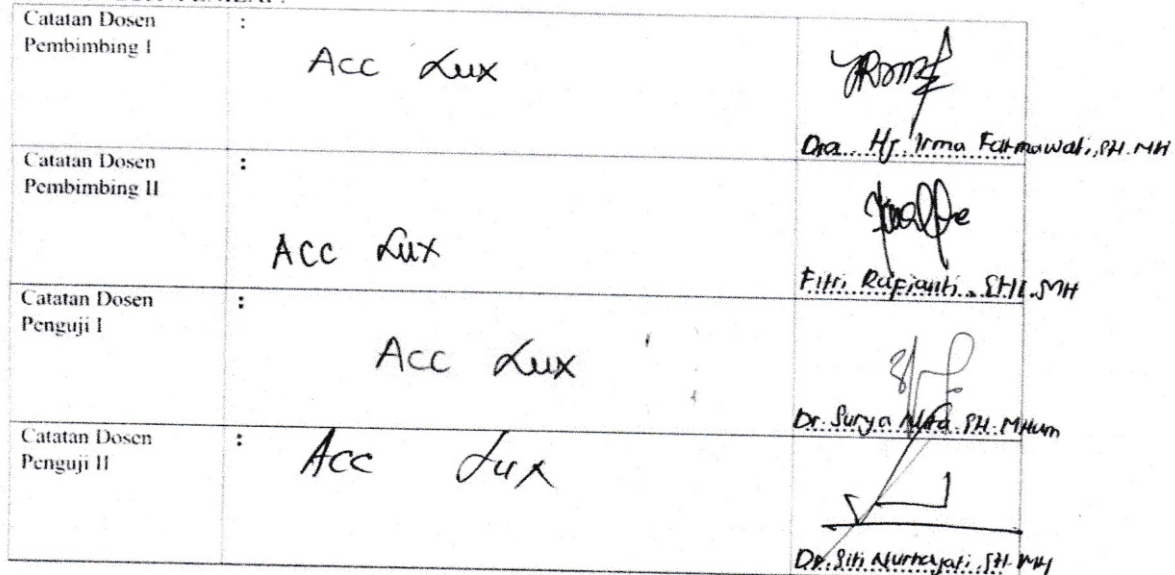 Catatan Dosen
Pembimbing I
:
Acc Lux
Dra. Hj. Irma Fatmawati, SH. MH
Catatan Dosen
Pembimbing II
:
Acc Lux
Fitri Rafianti, SHI. MH
Catatan Dosen
Penguji I
:
Acc Lux
Dr. Surya Nita. SH. MHum
Catatan Dosen
Penguji II
:
Acc Lux
Dr. Siti Nurhayati, SH. MH